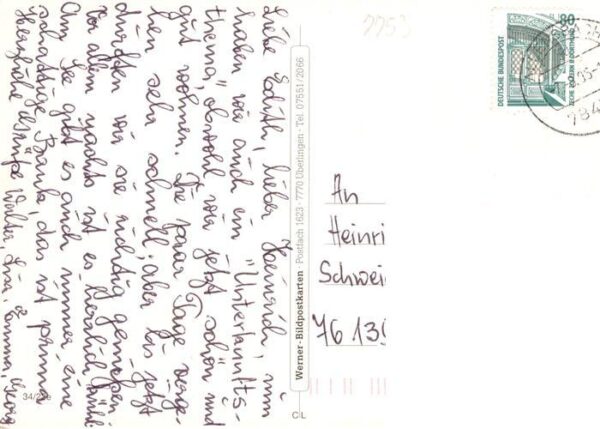 Liebe Edith, lieber Heinrich, nun
haben wir auch ein "Unterkunfts-
thema", obwohl wir jetzt schön und
gut wohnen. Die paar Tage verge-
hen sehr schnell, aber bis jetzt
durften wir sie richtig genießen.
Vor allem nachts ist es herrlich kühl.
Am See gibt es auch immer eine
schattige Bank, das ist prima
Herzliche Grüße Walter, Emma, Georg
34/22e
Werner-Bildpostkarten · Postfach 1623 · 7770 Überlingen · Tel. 07551/2066
C L
9953
80
DEUTSCHE BUNDESPOST
ZECHE ZOLLERN II DORTMUND
An
Heinri
Schwei
76 139